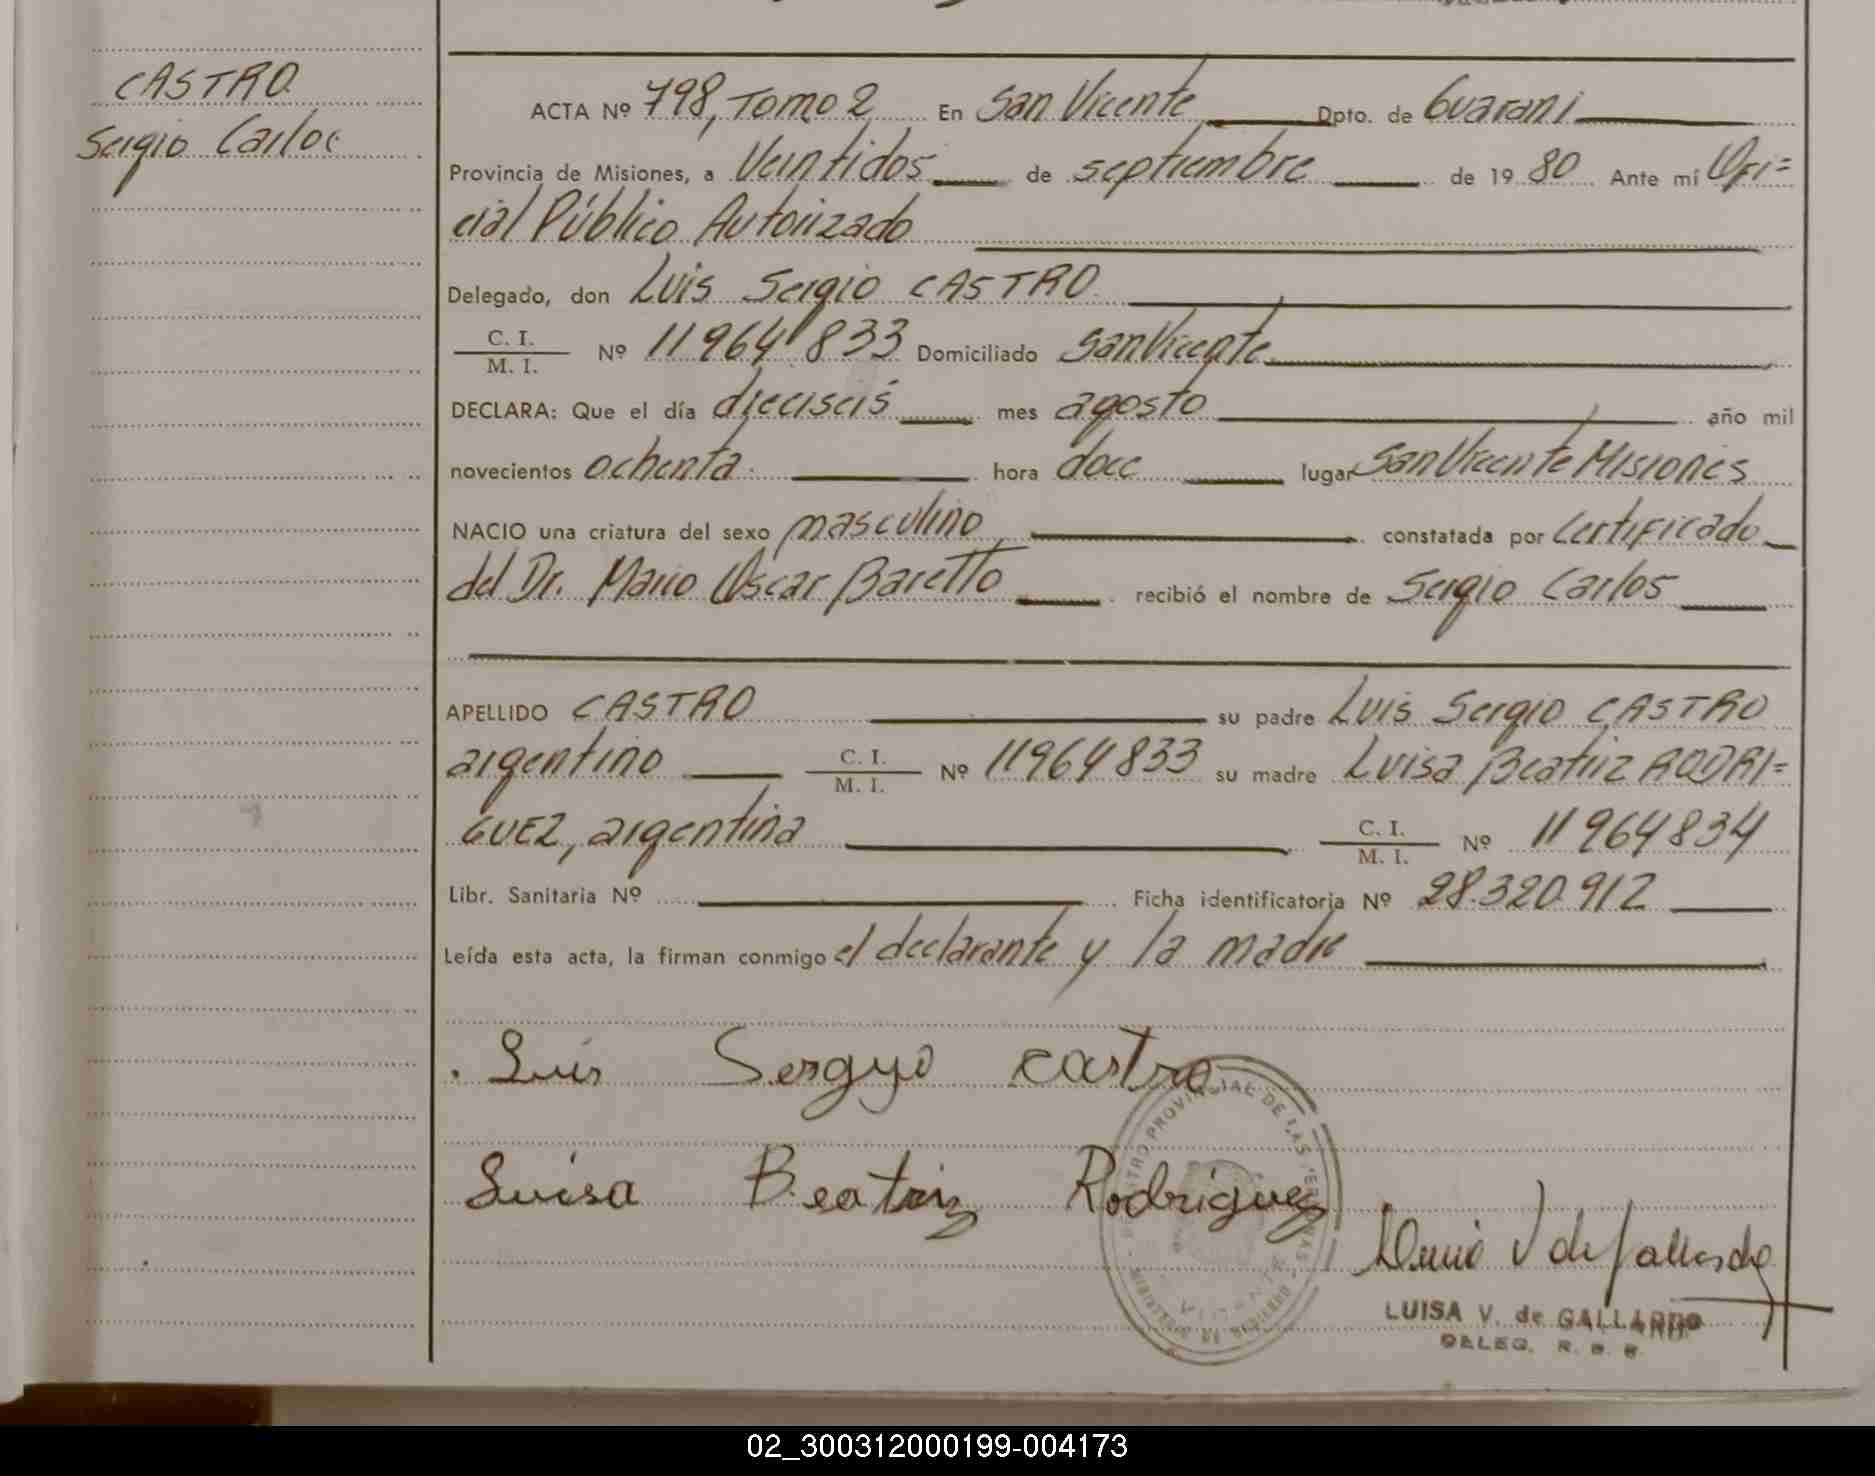 CASTRO
Sergio Carlos
ACTA Nº 798, Tomo 2 En San Vicente Dpto. de Guarani
Provincia de Misiones, a Veintidos de septiembre de 1980 Ante mí Ofi=
cial Público Autorizado
Delegado, don Luis Sergio CASTRO
C. I.
M. I. Nº 11964833 Domiciliado San Vicente
DECLARA: Que el día dieciseis mes agosto año mil
novecientos ochenta hora doce lugar San Vicente Misiones
NACIO una criatura del sexo masculino constatada por Certificado
del Dr. Mario Oscar Baretto recibió el nombre de Sergio Carlos
APELLIDO CASTRO su padre Luis Sergio CASTRO
argentino C. I. M. I. Nº 11964833 su madre Luisa Beatriz RODRI=
GUEZ, argentina C. I. M. I. Nº 11964834
Libr. Sanitaria Nº Ficha identificatoria Nº 28.320.912
Leída esta acta, la firman conmigo el declarante y la madre
Luis Sergyo castro
Luisa Beatriz Rodriguez
REGISTRO PROVINCIAL DE LAS PERSONAS
LUISA V. de GALLARDO
DELEG. R.
02_300312000199-004173